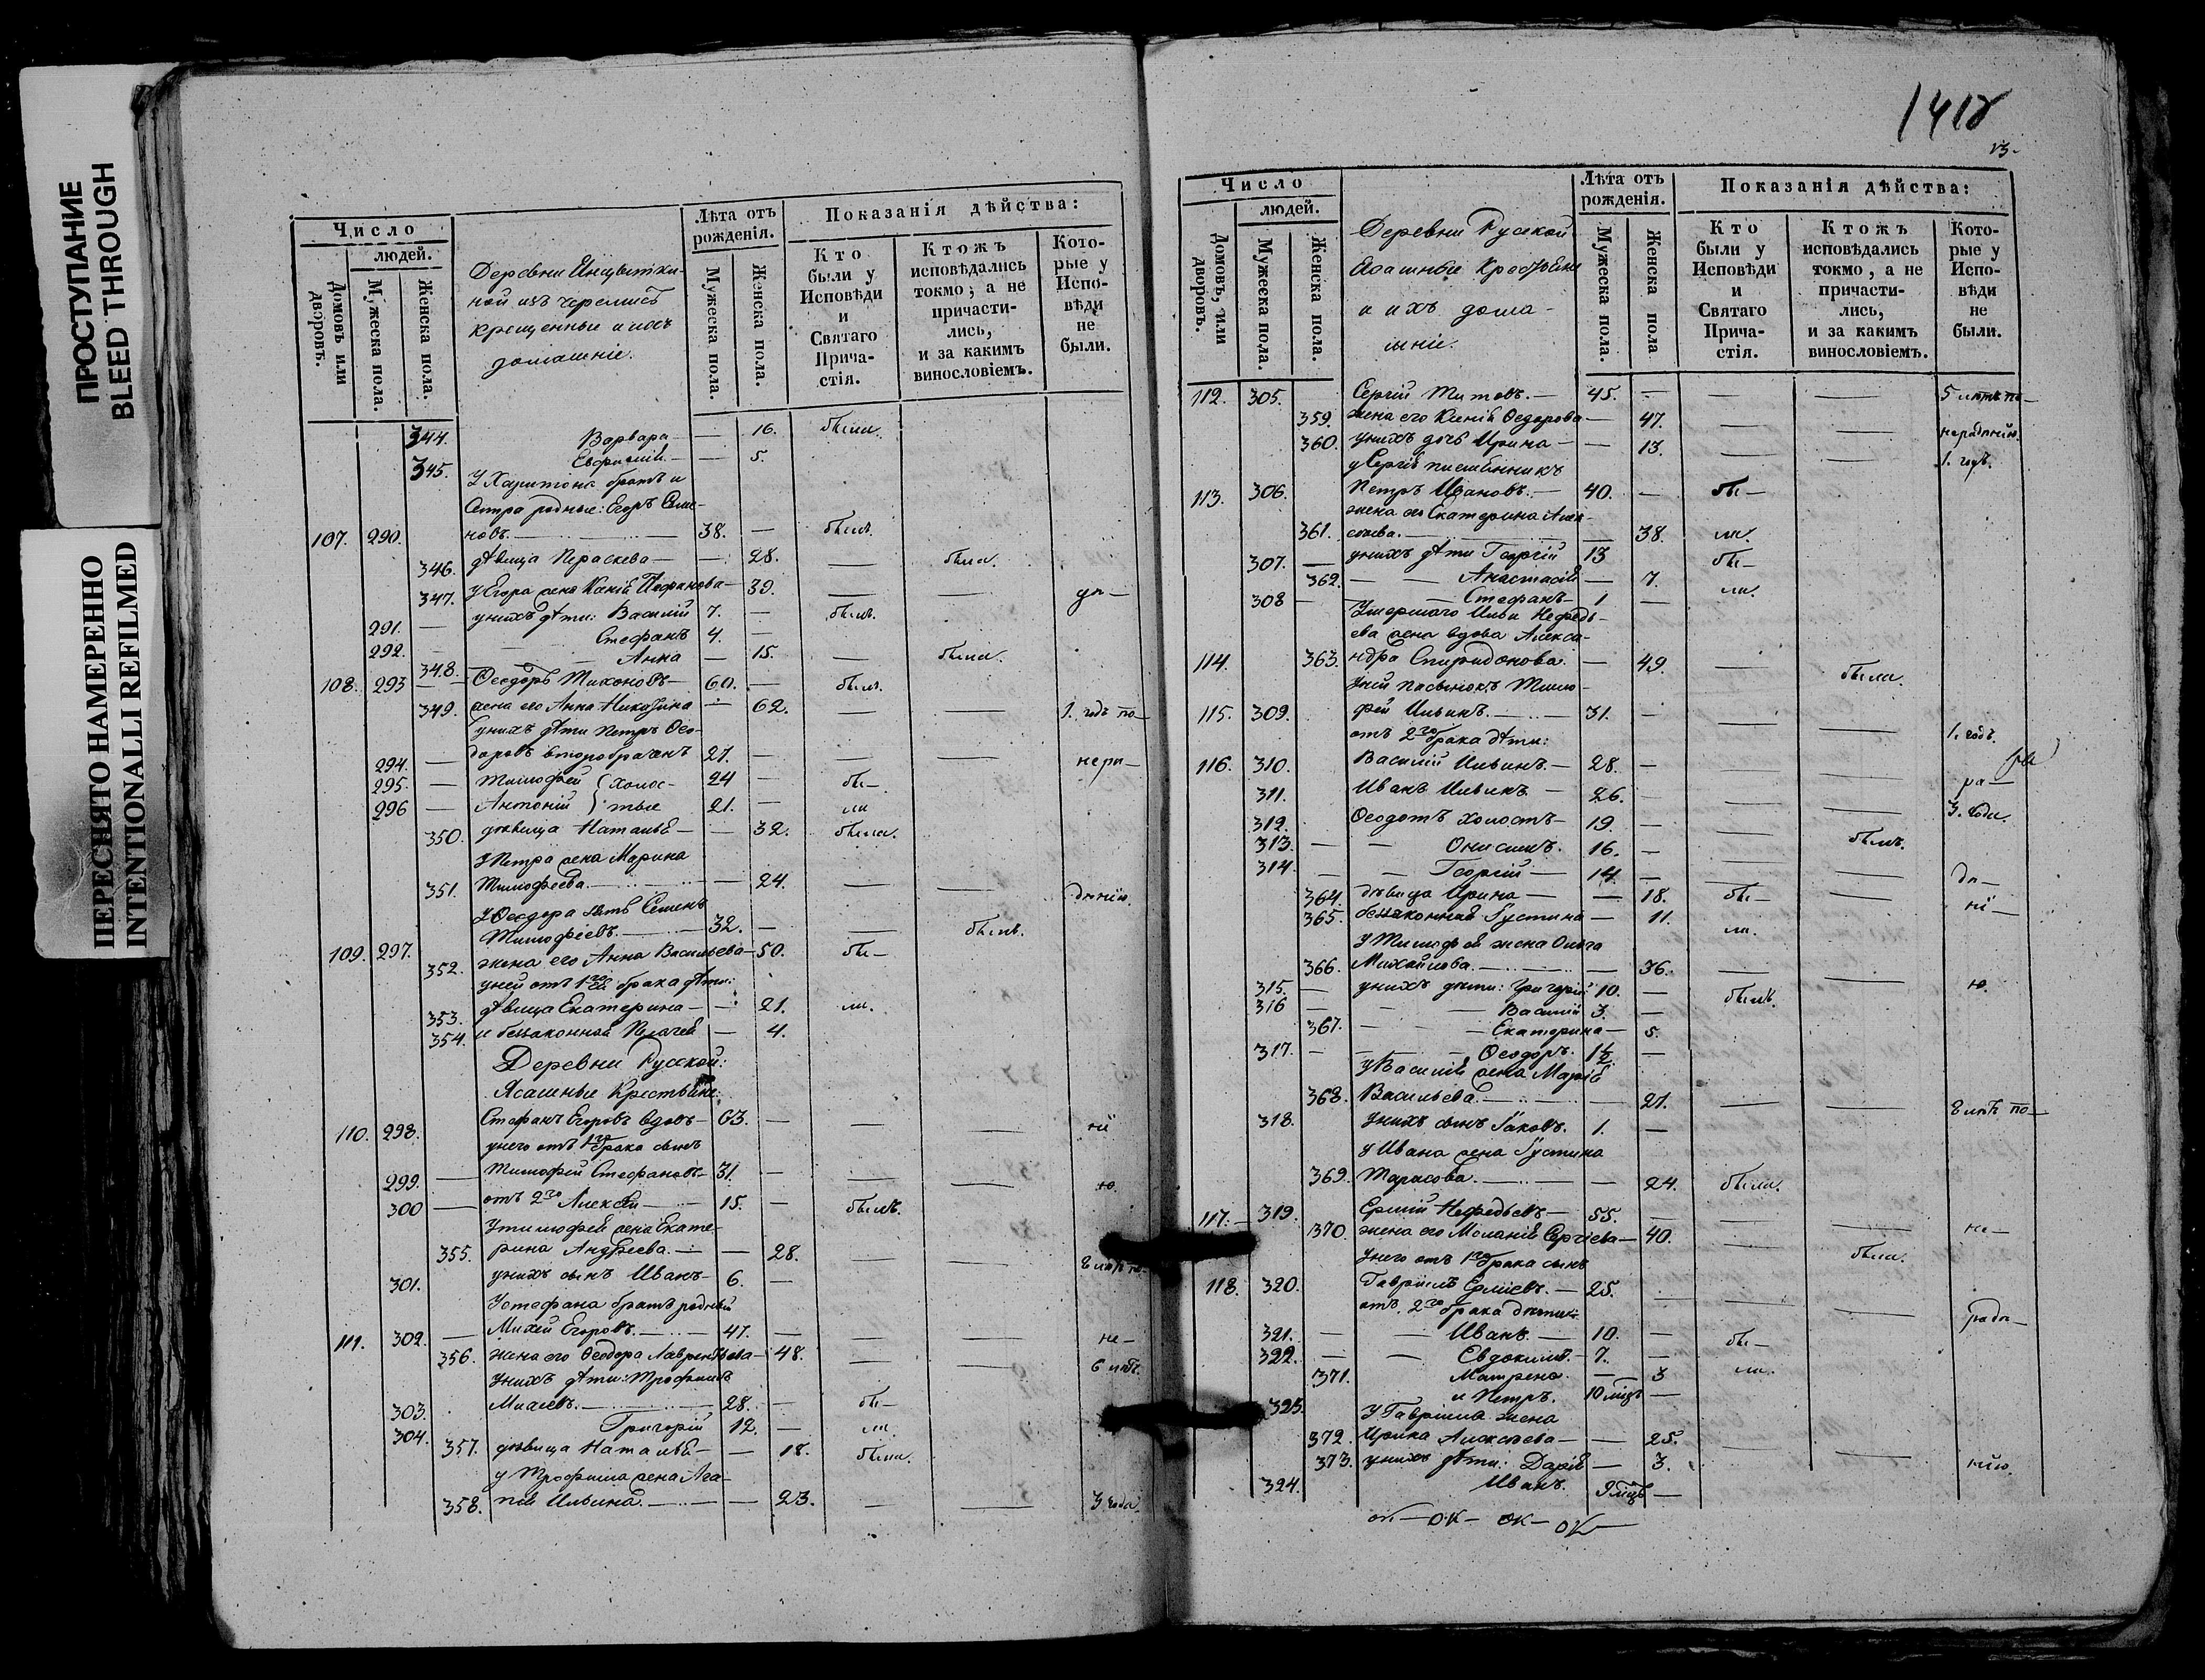 ПРОСТУПАНИЕ
BLEED THROUGH
ПЕРЕСНЯТО НАМЕРЕННО
INTENTIONALLI REFILMED
Число
людей.
Домовъ или дворовъ.
Мужеска пола.
Женска пола.
Деревни
ной изъ черемисъ
крещенные и ихъ
домашніе.
Лѣта отъ рожденія.
Мужеска пола.
Женска пола.
Показанія дѣйства:
Кто были у Исповѣди и Святаго Прича-стія.
Ктожъ исповѣдались токмо, а не причасти-лись, и за какимъ винословіемъ.
Кото-рые у Испо-вѣди не были.
344. Варвара — — 16. была.
345. Евфимія — — 5.
У Харитона братъ и
Сестра родные: Егоръ Семе-
107. 290. новъ. — 38. — былъ.
346. дѣвица Параскева — — 28. — была.
347. У Егора жена Ксенія — 39. — —
291. — у нихъ дѣти: Василій 7. — былъ.
292. — Стефанъ 4. —
348. — Анна — 15. — была.
108. 293 — — Ѳеодоръ Тихоновъ — 60. — былъ.
349. жена его Анна — 62. — — 1. годъ по —
у нихъ дѣти Петръ Ѳео-
294. — доровъ второбраченъ 27. — — — нера —
295. — Тимофей } холос- 24 — бы —
296 — Антоній } тые 21. — ли
350. дѣвица Наталья — — 32. была.
У Петра жена Марина
351. Тимофеева. — — 24. — — дѣнію.
У Ѳеодора зять Семенъ
109. 297. Тимофеевъ. — 32. — — былъ.
352. жена его Анна Васильева — 50. бы —
у ней отъ 1го брака дѣти:
353. дѣвица Екатерина — — 21. ли.
354. и беззаконная Пелагея — 4.
Деревни Русской:
Ясашные Крестьяне:
110. 298. Стефанъ Егоровъ вдовъ — 63. — — —
у него отъ 1го брака сынъ
299. — Тимофей Стефановъ — 31. — — —
300 — отъ 2го Алексѣй — 15. — былъ.
У Тимофея жена Екате-
355. рина Андреева. — — 28. —
301. у нихъ сынъ Иванъ — 6. —
У Стефана братъ родный
111. 302. — Михей Егоровъ. — 47. — — — не —
356. жена его Ѳеодора Лаврентьева — 48. — — 6 лѣтъ.
У нихъ дѣти: Трофимъ
303. Михеевъ. — 28. — бы —
304. Григорій 12. — ли
357. дѣвица Наталья — — 18. была.
у Трофима жена Ага-
358. пія Ильина. — — 23. — — 3 года
1418
Число
людей.
Домовъ, или дворовъ.
Мужеска пола
Женска пола.
Деревни Русской
Ясашные Крестьяне
и ихъ дома-
шніе.
Лѣта отъ рожденія.
Мужеска пола.
Женска пола
Показанія дѣйства:
Кто были у Исповѣди и Святаго Прича-стія.
Ктожъ исповѣдались токмо, а не причасти-лись, и за какимъ винословіемъ.
Кото-рые у Испо-вѣди не были.
112. 305. Сергій Титовъ. — 45. — — — 5 лѣтъ по —
359. жена его Ксенія Ѳедорова — 47. — — нерадѣнію.
360. у нихъ дочь Ирина — — 13. — — 1. годъ.
у Сергія племянникъ
113. 306. Петръ Ивановъ. — 40. — бы —
жена его Екатерина Алек-
361. сеева. — — 38. ли.
307. — у нихъ дѣти Георгій 13 бы —
362. — — Анастасія — 7. ли.
308 — — Стефанъ — 1 —
Умершаго Ильи Нефедь-
ева жена вдова Алекса-
114. 363. ндра Спиридонова. — 49. — была.
У ней пасынокъ Тимо-
115. 309. фей Ильинъ. — 31. — — 1. годъ.
отъ 2го брака дѣти:
116. 310. Василій Ильинъ. — 28. — — —
311. Иванъ Ильинъ — 26. — — — ра —
312. Ѳеодотъ холостъ — 19. — — — 3. года.
313. — — Онисимъ. 16. — — былъ.
314. — — Георгій — 14. — — — дѣ —
364. дѣвица Ирина — — 18. бы — —
365. беззаконная Іустина — 11. ли.
У Тимофея жена Ольга
366. Михайлова. — — 36. — —
315. — у нихъ дѣти: Григорій 10. — былъ. ю.
316 — — Василій 3. —
367. — — Екатерина — 5.
317. — — Ѳеодоръ. 1½ —
у Василія жена Марія
368. Васильева. — — 21. — — 2 лѣтъ по —
318. У нихъ сынъ Іаковъ. 1. —
У Ивана жена Іустина
369. Тарасова. — — 24. была.
117. — 319. Ермій Нефедьевъ — 55. — — — не —
370. жена его Меланія Сергіева — 40. — была.
У него отъ 1го брака сынъ
118. 320. Гавріилъ Ерміевъ. — 25. — — —
отъ 2го брака дѣти:
321. — — Иванъ. — 10. — бы —
322. — — Евдокимъ. — 7. — ли.
371. Матрена. — 3
323. и Петръ. 10 мцъ —
У Гавріила жена
372. Ирина Алексѣева — — 25. — —
373. у нихъ дѣти: Дарія — 3.
324. Иванъ. 9 мцъ —